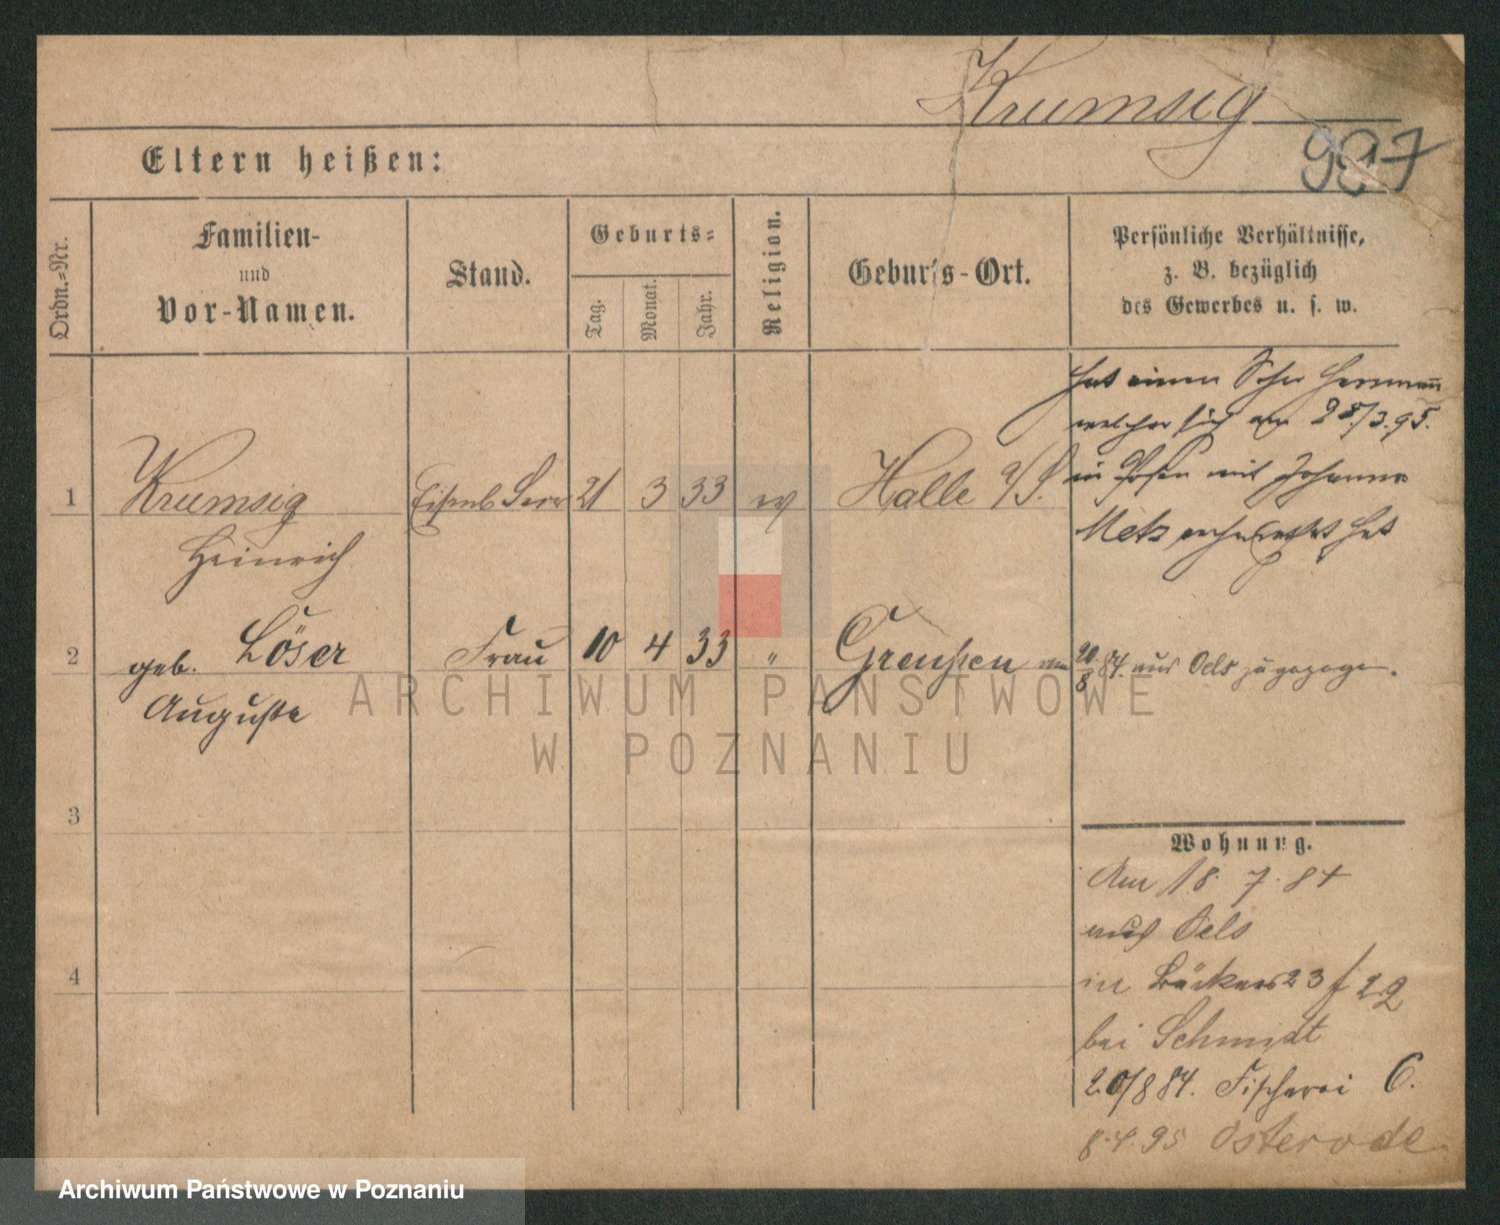 Krumsig
937
Eltern heißen:
Ordn.-Nr.
Familien-
und
Vor-Namen.
Stand.
Geburts-
Tag.
Monat.
Jahr.
Religion.
Geburts-Ort.
Persönliche Verhältnisse,
z. B. bezüglich
des Gewerbes u. s. w.
hat einen Sohn Hermann
welcher sich am 25/3.95.
in Posen mit Johanna
Metz verheirathet hat
1 Krumsig 21 3 33 ev Halle a/S.
Heinrich
2 geb. Löser Frau 10 4 33 " Greußen am 20/8 84. aus Oels zugezogen.
Auguste
3
4
Wohnung.
Am 18. 7. 84
aus Oels
in 23
bei Schmidt
20/8 84. Fischerei 6.
95 Osterode
ARCHIWUM PAŃSTWOWE
W POZNANIU
Archiwum Państwowe w Poznaniu